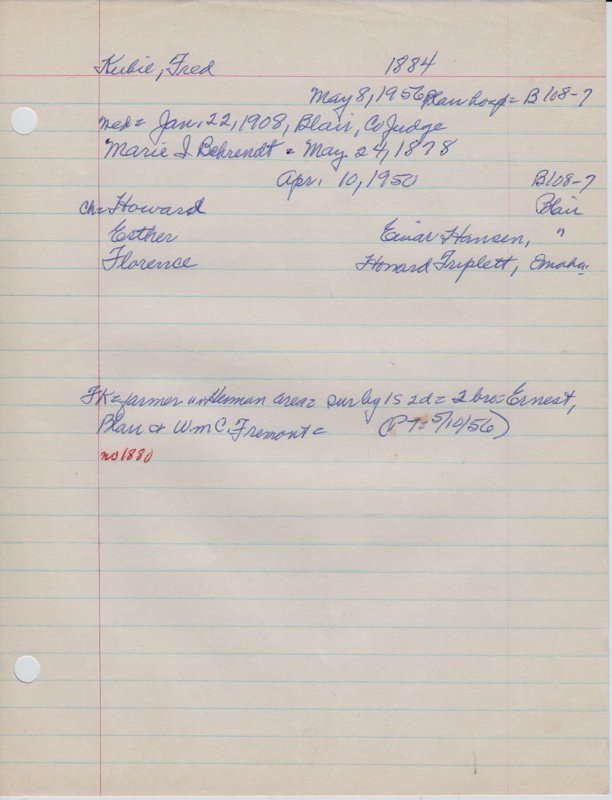 Kubie, Fred 1884
May 8, 1956 Blair hosp= B108-7
med= Jan. 22, 1908, Blair, Co Judge
Marie I Behrendt = May 24, 1878
Apr. 10, 1950 B108-7
ch= Howard Blair
Esther Einar Hansen, "
Florence Howard Triplett, Omaha
FK= farmer in Herman area= sur by 1s 2d= 2 bro= Ernest,
Blair & Wm C. Fremont= (PT= 5/10/56)
no 1880